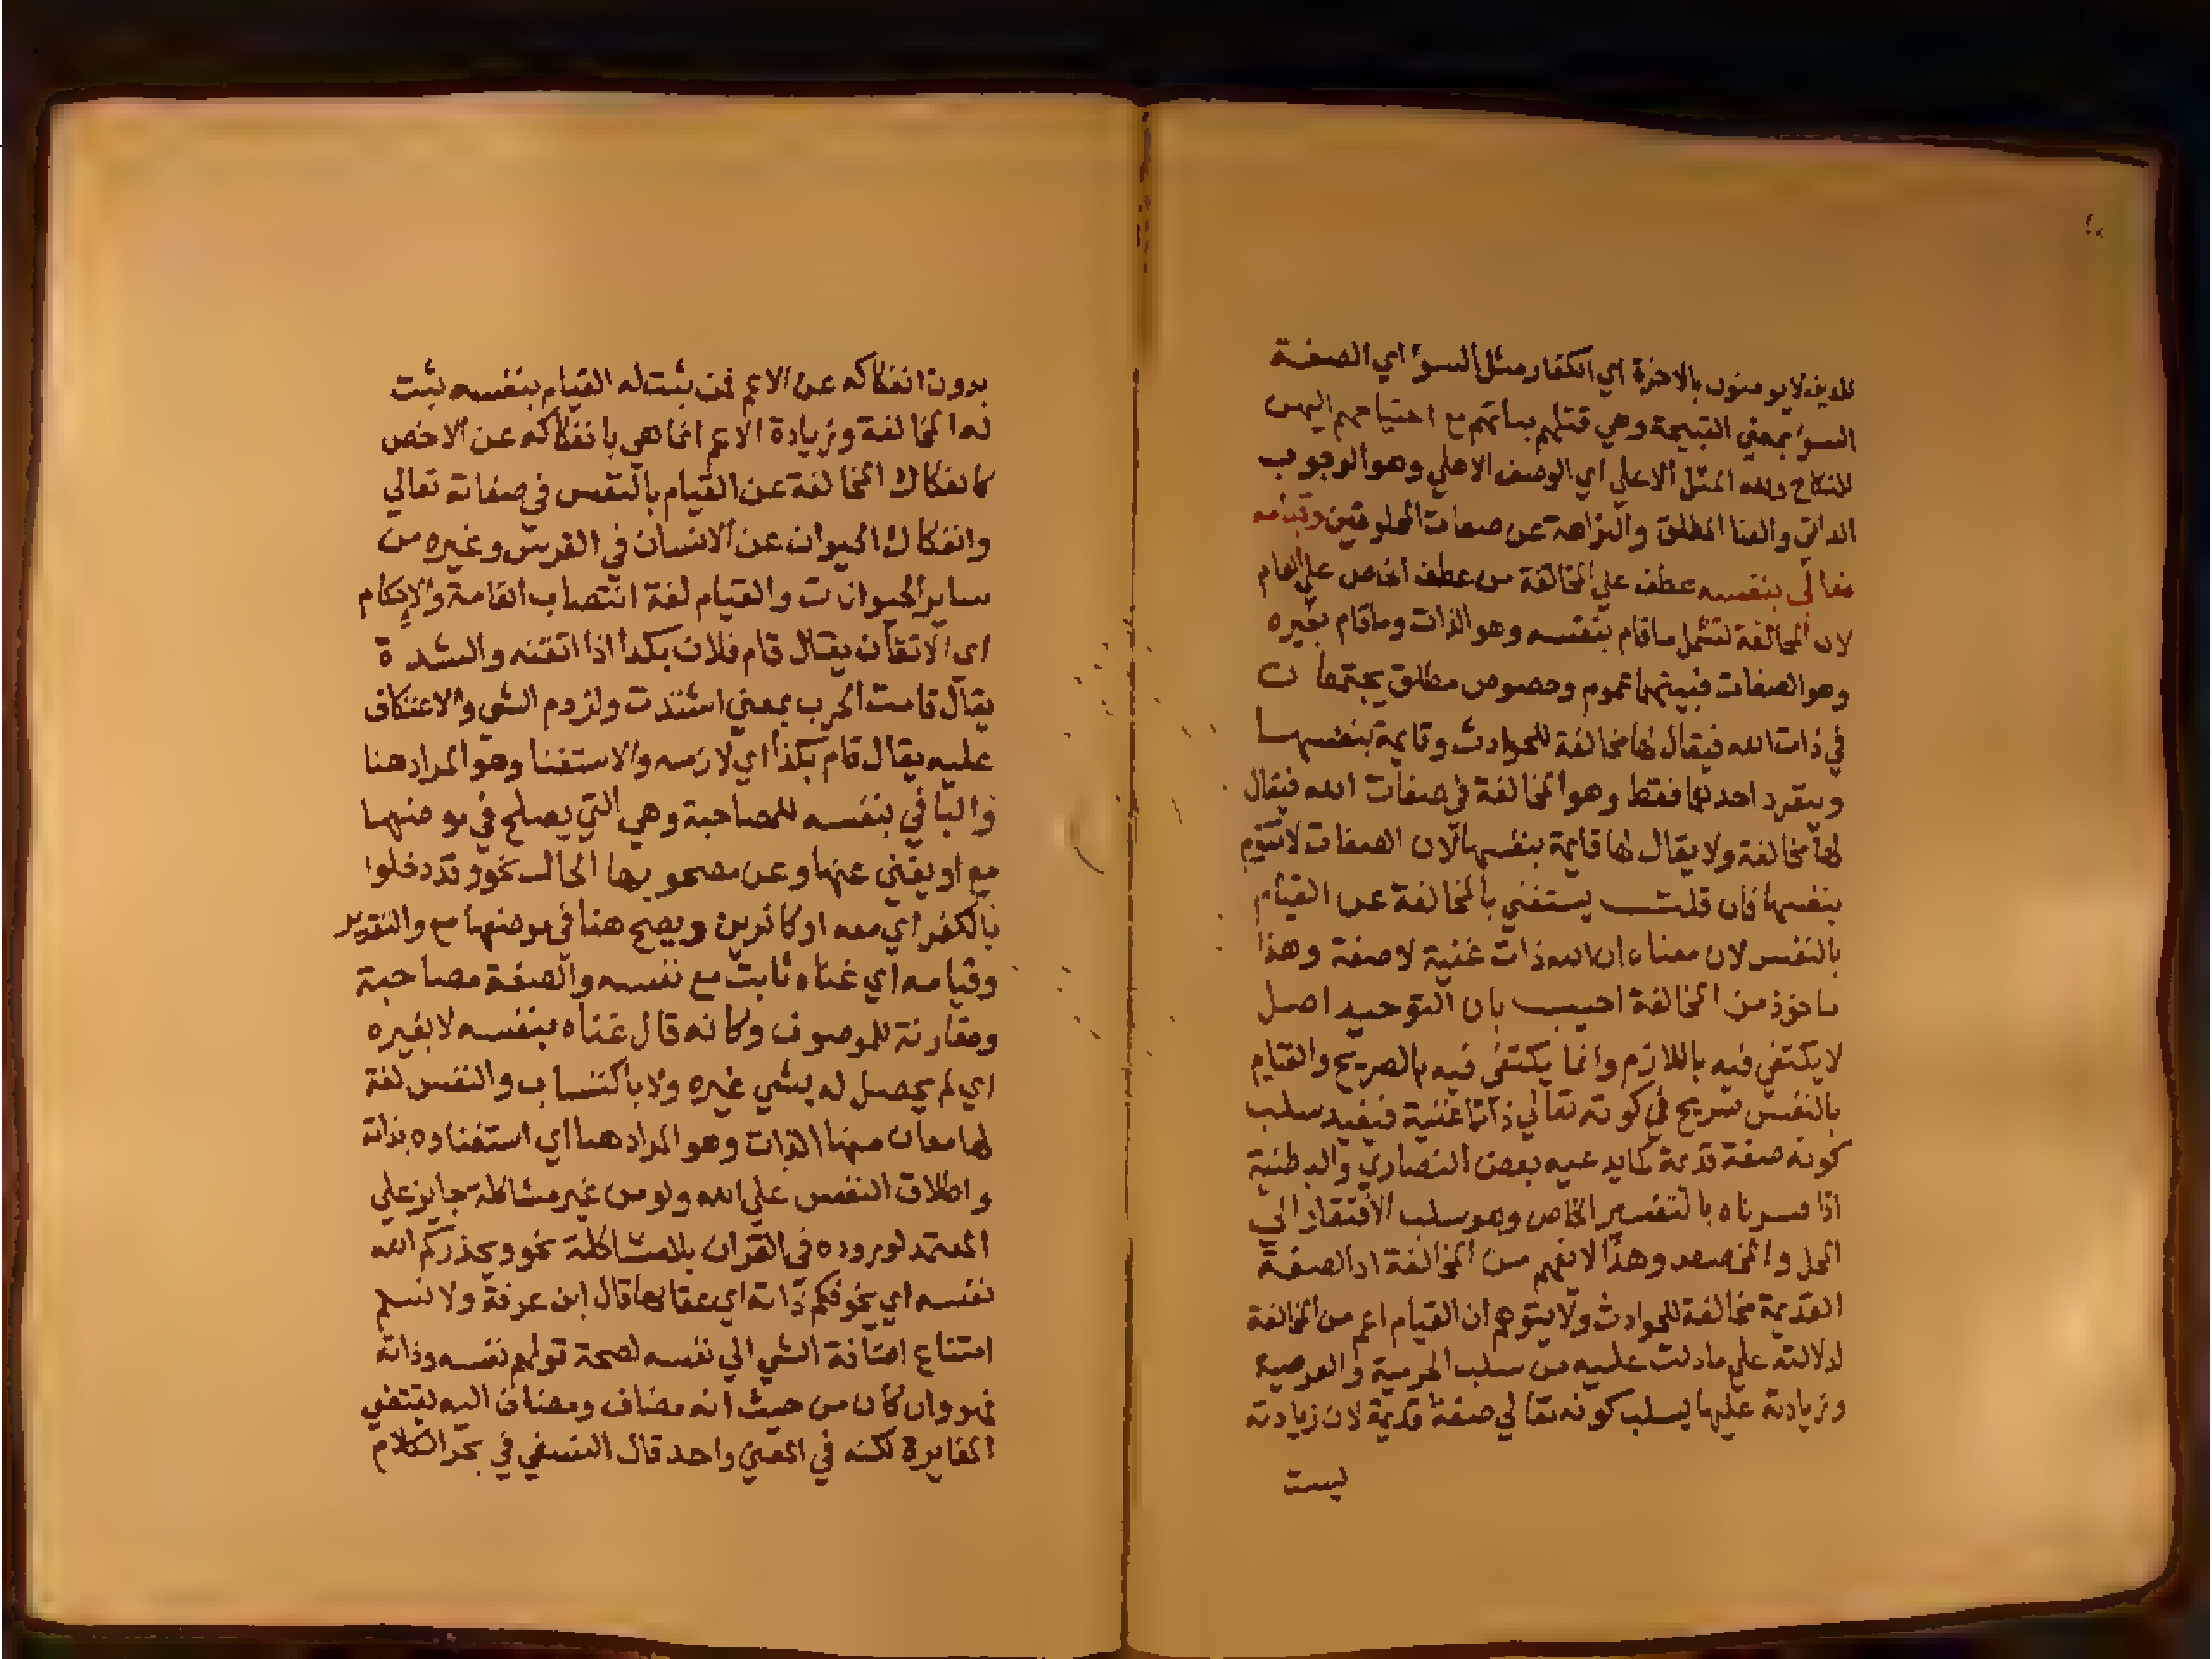 للذين لا يومنون بالاخرة اي الكفار مثل السوء اي الصفة
السوء بمعني القبيحة وهي قتلهم بناتهم مع احتياجهم اليهن
للنكاح ولله المثل الاعلي اي الوصف الاعلي وهو الوجوب
الذاتي والغنا المطلق والنزاهة عن صفات المخلوقين وقيامه
تعالي بنفسه عطف علي المخالفة من عطف الخاص علي العام
لان المخالفة تشمل ما قام بنفسه وهو الذات وما قام بغيره
وهو الصفات فبينهما عموم وخصوص مطلق يجتمعان
في ذات الله فيقال لها مخالفة للحوادث وقايمة بنفسها
وينفرد احدهما فقط وهو المخالفة في صفات الله فيقال
لها مخالفة ولا يقال لها قايمة بنفسها لان الصفات لا تقوم
بنفسها فان قلت يستغني بالمخالفة عن القيام
بالنفس لان معناه ان الله ذات غنية لا صفة وهذا
ماخوذ من المخالفة اجيب بان التوحيد اصل
لا يكتفي فيه باللازم وانما يكتفي فيه بالصريح والقيام
بالنفس صريح في كونه تعالي ذاتا غنية فيفيد سلب
كونه صفة قديمة كما يدعيه بعض النصاري والبطنية
اذا فسرناه بالتفسير الخاص وهو سلب الافتقار الي
المحل والمخصص وهذا لا يفهم من المخالفة اذ الصفة
القديمة مخالفة للحوادث ولا يتوهم ان القيام اعم من المخالفة
لدلالته علي ما دلت عليه من سلب الجرمية والعرضية
وزيادته عليها بسلب كونه تعالي صفة قديمة لان زيادته
ليست
بدون انفكاكه عن الاعم فمن يثبت له القيام بنفسه يثبت
له المخالفة وزيادة الاعم انما هي بانفكاكه عن الاخص
كانفكاك المخالفة عن القيام بالنفس في صفاته تعالي
وانفكاك الحيوان عن الانسان في الفرس وغيره من
ساير الحيوانات والقيام لغة انتصاب القامة والاحكام
اي الاتقان يقال قام فلان بكذا اذا اتقنه والشدة
يقال قامت الحرب بمعني اشتدت ولزوم الشي والاعتكاف
عليه يقال قام بكذا اي لازمه والاستغنا وهو المراد هنا
والبا في بنفسه للمصاحبة وهي التي يصلح في موضعها
مع او يغني عنها وعن مصحوبها الحال نحو وقد دخلوا
بالكفر اي معه او كافرين ويصح هنا في موضعها مع والتقدير
وقيامه اي غناه ثابت مع نفسه والصفة مصاحبة
ومقارنة للموصوف وكانه قال غناه بنفسه لا بغيره
اي لم يحصل له بشي غيره ولا باكتساب والنفس لغة
لها معان منها الذات وهو المراد هنا اي استغناوه بذاته
واطلاق النفس علي الله ولو من غير مشاكلة جايز علي
المعتمد لوروده في القران بلا مشاكلة نحو ويحذركم الله
نفسه اي يخوفكم ذاته اي عقابها قال ابن عرفة ولا نسلم
امتناع اضافة الشي الي نفسه لصحة قولهم نفسه وذاته
فهو وان كان من حيث انه مضاف ومضاف اليه يقتضي
المغايرة لكنه في المعني واحد قال النسفي في بحر الكلام